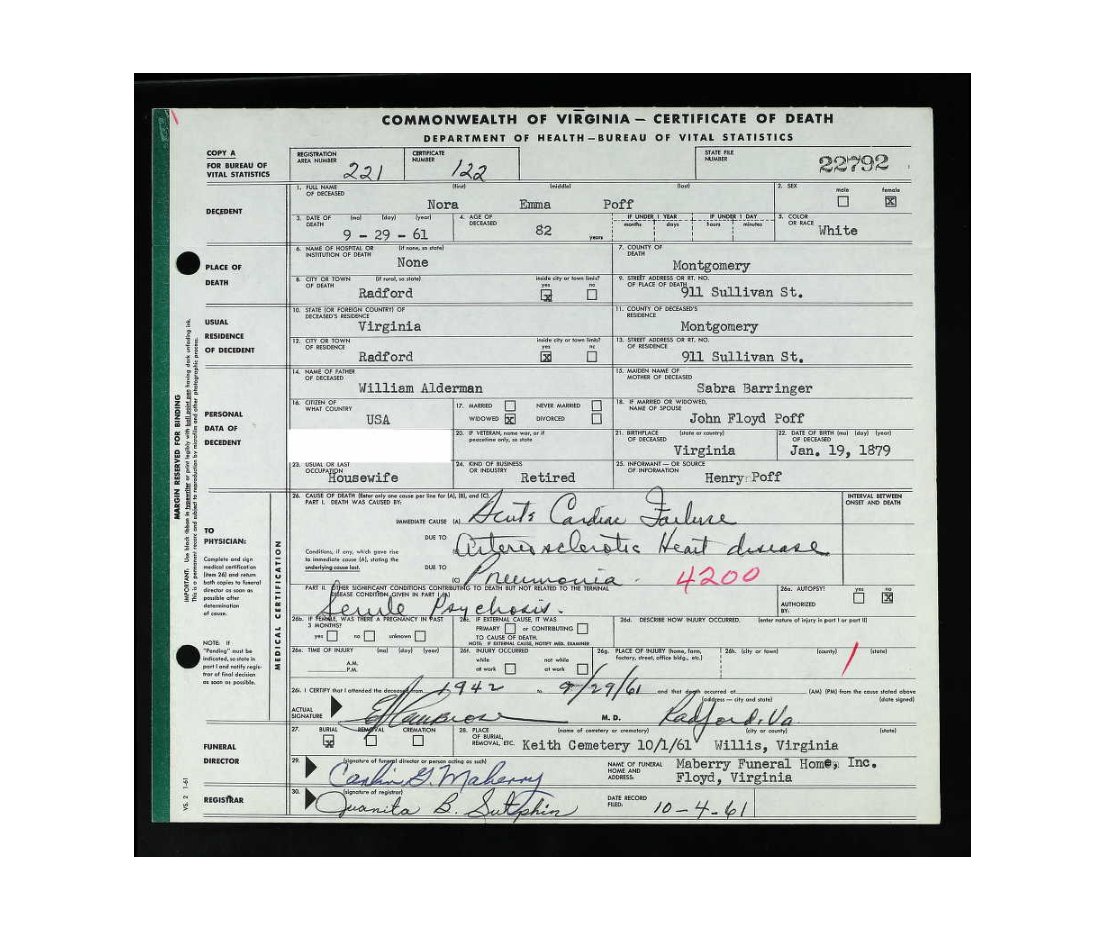 COMMONWEALTH OF VIRGINIA — CERTIFICATE OF DEATH
DEPARTMENT OF HEALTH — BUREAU OF VITAL STATISTICS
COPY A
FOR BUREAU OF VITAL STATISTICS
REGISTRATION AREA NUMBER 221
CERTIFICATE NUMBER 122
STATE FILE NUMBER 22792
DECEDENT
1. FULL NAME OF DECEASED (first) (middle) (last)
Nora Emma Poff
2. SEX male female X
3. DATE OF DEATH (mo) (day) (year)
9 - 29 - 61
4. AGE OF DECEASED 82 years
IF UNDER 1 YEAR months days
IF UNDER 1 DAY hours minutes
5. COLOR OR RACE White
PLACE OF DEATH
6. NAME OF HOSPITAL OR INSTITUTION OF DEATH (if none, so state)
None
7. COUNTY OF DEATH
Montgomery
8. CITY OR TOWN OF DEATH (if rural, so state)
Radford
inside city or town limits? yes X no
9. STREET ADDRESS OR RT. NO. OF PLACE OF DEATH
911 Sullivan St.
USUAL RESIDENCE OF DECEDENT
10. STATE (OR FOREIGN COUNTRY) OF DECEASED'S RESIDENCE
Virginia
11. COUNTY OF DECEASED'S RESIDENCE
Montgomery
12. CITY OR TOWN OF RESIDENCE
Radford
inside city or town limits? yes X no
13. STREET ADDRESS OR RT. NO. OF RESIDENCE
911 Sullivan St.
PERSONAL DATA OF DECEDENT
14. NAME OF FATHER OF DECEASED
William Alderman
15. MAIDEN NAME OF MOTHER OF DECEASED
Sabra Barringer
16. CITIZEN OF WHAT COUNTRY
USA
17. MARRIED NEVER MARRIED
WIDOWED X DIVORCED
18. IF MARRIED OR WIDOWED, NAME OF SPOUSE
John Floyd Poff
20. IF VETERAN, name war, or if peacetime only, so state
21. BIRTHPLACE (state or country)
Virginia
22. DATE OF BIRTH (mo) (day) (year) OF DECEASED
Jan. 19, 1879
23. USUAL OR LAST OCCUPATION
Housewife
24. KIND OF BUSINESS OR INDUSTRY
Retired
25. INFORMANT — OR SOURCE OF INFORMATION
Henry Poff
TO PHYSICIAN:
Complete and sign medical certification (item 26) and return both copies to funeral director as soon as possible after determination of cause.
NOTE: If "Pending" must be indicated, so state in part I and notify registrar of final decision as soon as possible.
MEDICAL CERTIFICATION
26. CAUSE OF DEATH (Enter only one cause per line for (A), (B), and (C).
PART I. DEATH WAS CAUSED BY:
INTERVAL BETWEEN ONSET AND DEATH
IMMEDIATE CAUSE (A) Acute Cardiac Failure
Conditions, if any, which gave rise to immediate cause (A), stating the underlying cause last.
DUE TO Arteriosclerotic Heart disease
DUE TO (C) Pneumonia. 4200
PART II. OTHER SIGNIFICANT CONDITIONS CONTRIBUTING TO DEATH BUT NOT RELATED TO THE TERMINAL DISEASE CONDITION GIVEN IN PART I (A)
Senile Psychosis.
26a. AUTOPSY? yes no X
AUTHORIZED BY:
26b. IF FEMALE, WAS THERE A PREGNANCY IN PAST 3 MONTHS? yes no unknown
26c. IF EXTERNAL CAUSE, IT WAS PRIMARY or CONTRIBUTING TO CAUSE OF DEATH.
NOTE: IF EXTERNAL CAUSE, NOTIFY MED. EXAMINER
26d. DESCRIBE HOW INJURY OCCURRED. (enter nature of injury in part I or part II)
26e. TIME OF INJURY (mo) (day) (year)
A.M.
P.M.
26f. INJURY OCCURRED while at work not while at work
26g. PLACE OF INJURY (home, farm, factory, street, office bldg., etc.)
26h. (city or town) (county) (state)
26i. I CERTIFY that I attended the deceased from 1942 to 9/29/61 and that death occurred at (AM) (PM) from the cause stated above
(address — city and state) (date signed)
ACTUAL SIGNATURE M. D. Radford, Va.
FUNERAL DIRECTOR
27. BURIAL X REMOVAL CREMATION
28. PLACE OF BURIAL, REMOVAL, ETC. (name of cemetery or crematory) (city or county) (state)
Keith Cemetery 10/1/61 Willis, Virginia
29. (signature of funeral director or person acting as such)
G. Maberry
NAME OF FUNERAL HOME AND ADDRESS: Maberry Funeral Home, Inc.
Floyd, Virginia
REGISTRAR
30. (signature of registrar)
Juanita B. Sutphin
DATE RECORD FILED: 10-4-61
MARGIN RESERVED FOR BINDING
VS. 2 1-61